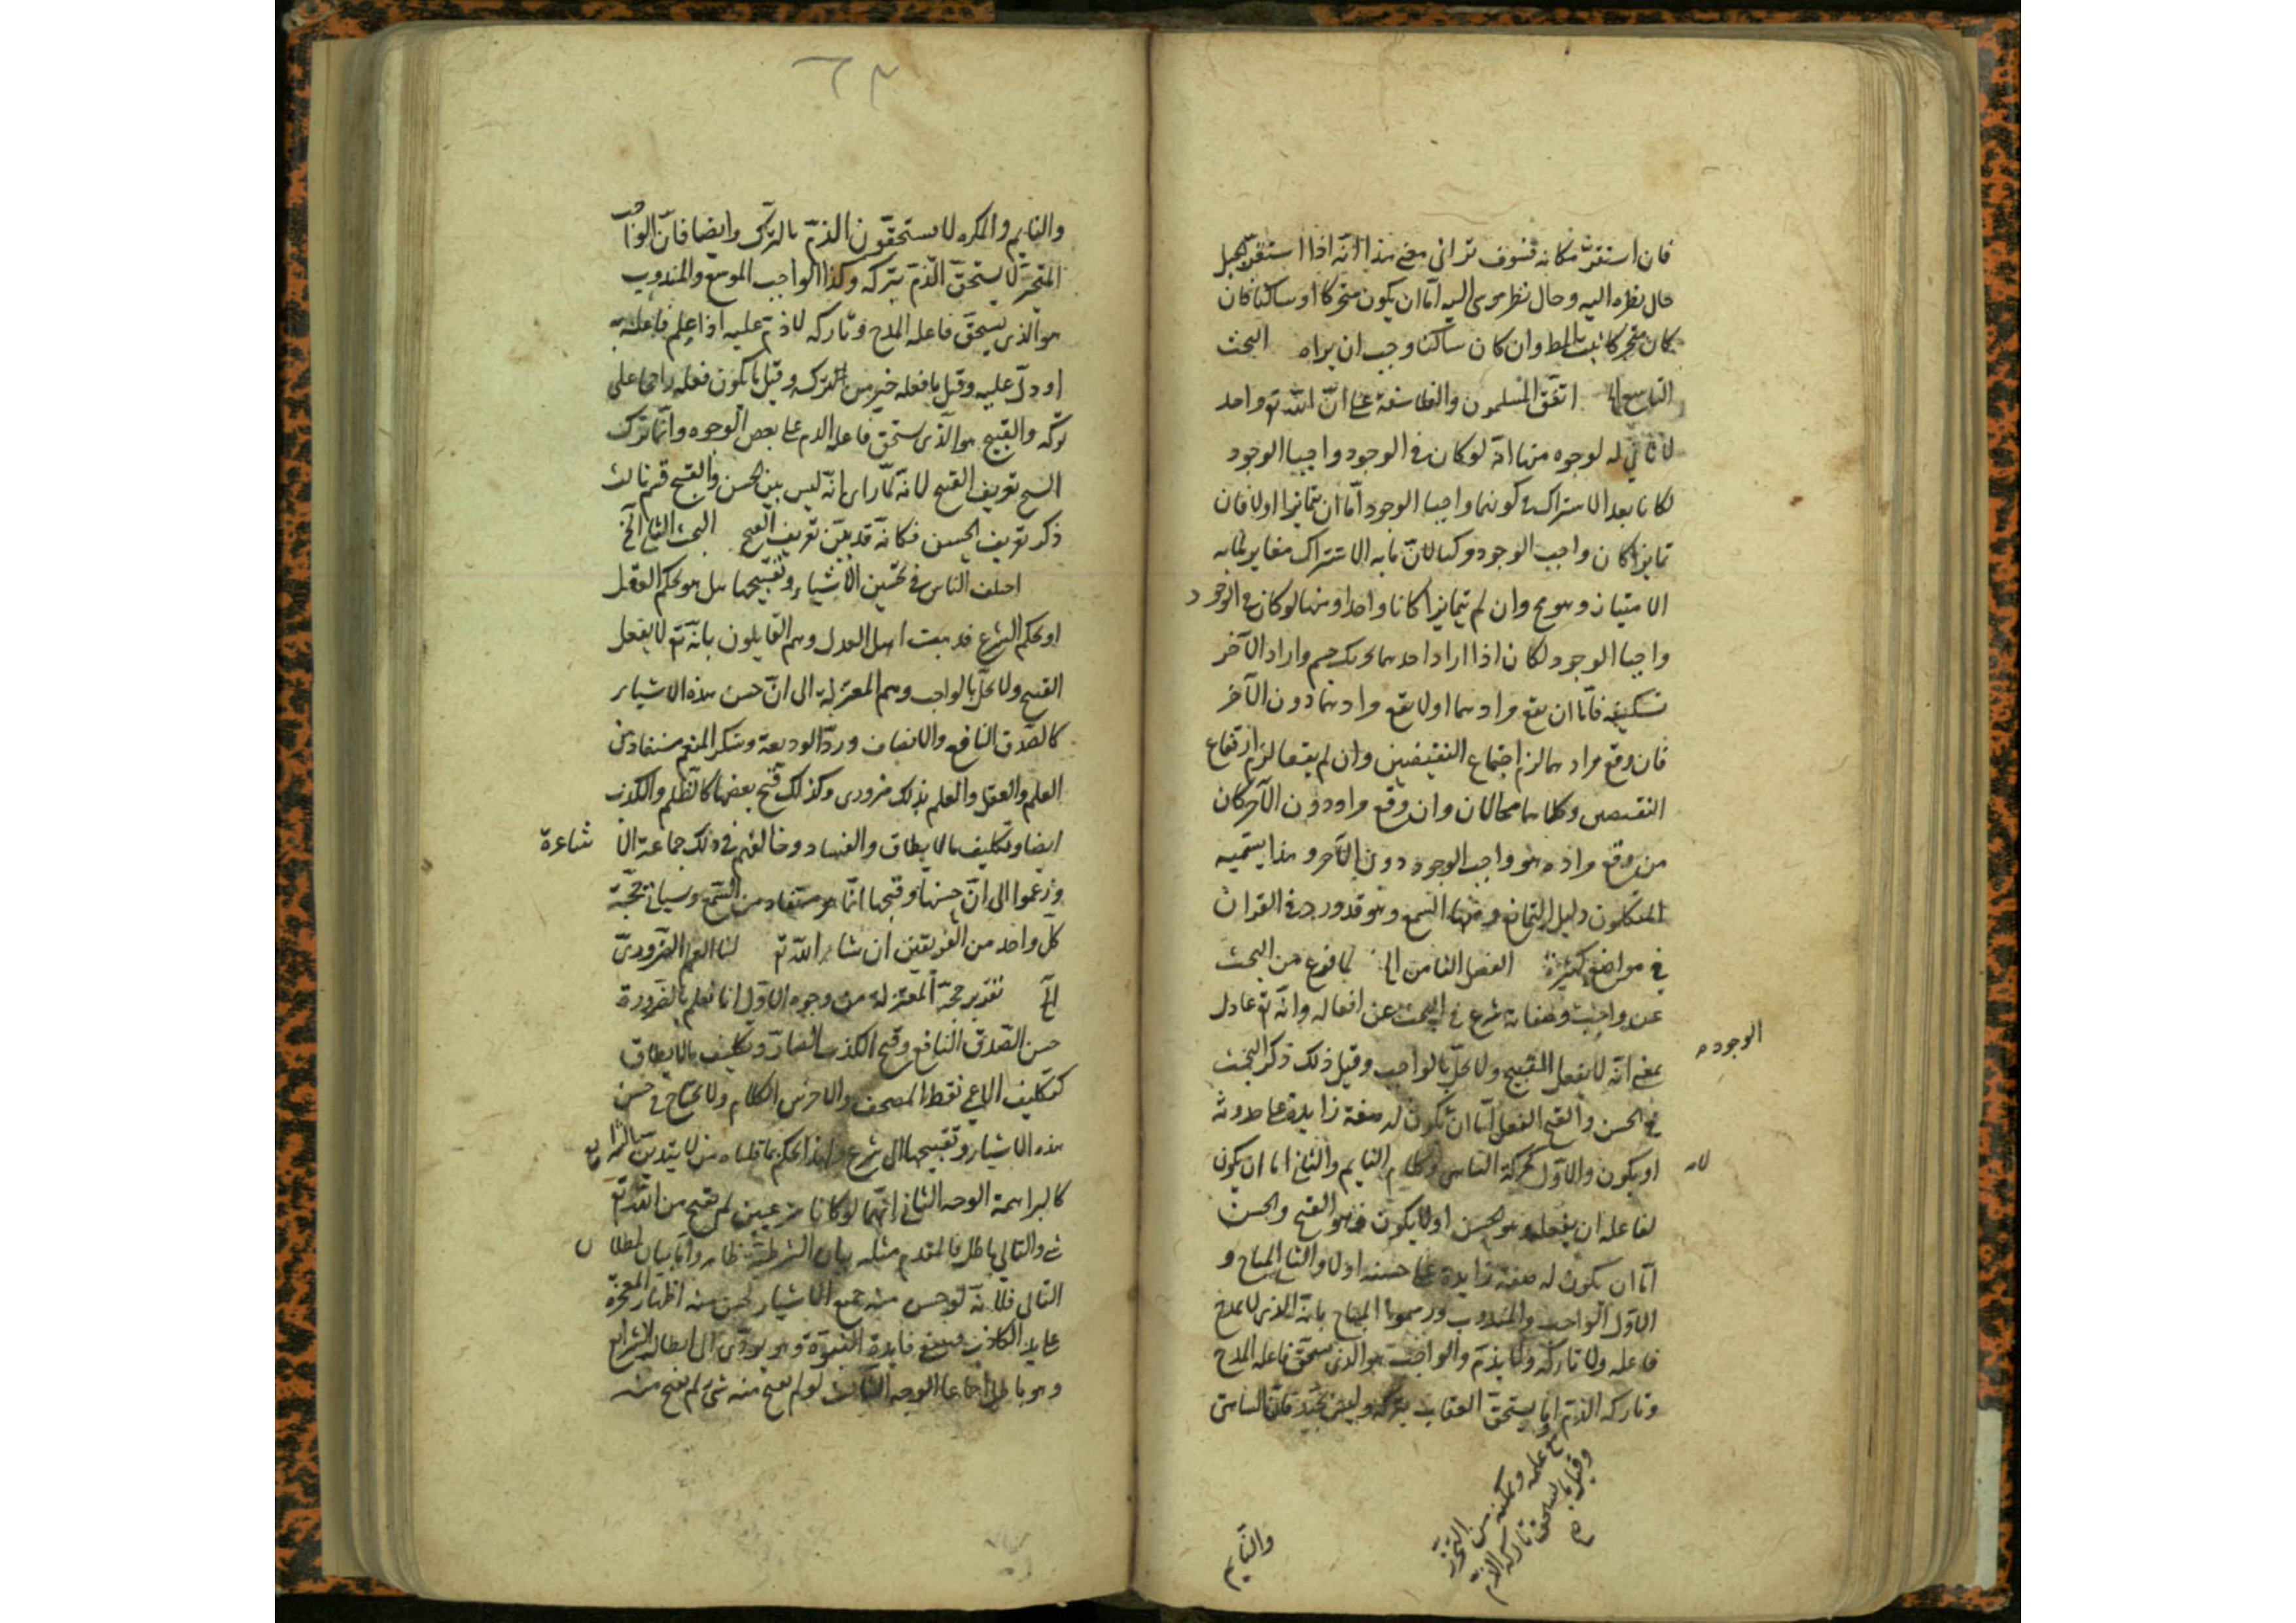 فان استقر مكانه فسوف ترانى معنى هذا انه اذا استقر الجبل
حال نظره اليه وحال نظر موسى اليه اما ان يكون متحركا او ساكنا فان
كان متحركا ثبت المط وان كان ساكنا وجب ان يراه البحث
التاسع الخ اتفق المسلمون والفلاسفة على ان الله تع واحد
لا ثانى له لوجوه منها انه لو كان فى الوجود واجبا الوجود
لكانا بعد الاشتراك فى كونهما واجبا الوجود اما ان يتمايزا اولا فان
تمايزا كان واجب الوجود مركبا لان ما به الاشتراك مغاير لما به
الامتياز وهو مح وان لم يتمايزا كانا واحدا ومنها لو كان فى الوجود
واجبا الوجود لكان اذا اراد احدهما تحريك جسم واراد الآخر
تسكينه فاما ان يقع مرادهما اولا يقع مرادهما دون الآخر
فان وقع مرادهما لزم اجتماع النقيضين وان لم يقعا لزم ارتفاع
النقيضين وكلاهما محالان وان وقع مراد دون الآخر كان
من وقع مراده هو واجب الوجود دون الآخر وهذا يسميه
المتكلمون دليل التمانع ومنها السمع وهو قد ورد فى القران
فى مواضع كثيرة الفصل الثامن الخ لما فرغ من البحث
عن واجب وصفاته شرع فى البحث عن افعاله وانه تع عادل
الوجود
بمعنى انه لا يفعل القبيح ولا يخل بالواجب وقبل ذلك ذكر البحث
فى الحسن والقبح الفعل اما ان يكون له صفة زايدة على حدوثه
او يكون والاول كحركة الساهى وكلام النايم والثانى اما ان يكون
لا
لفاعله ان يفعله وهو الحسن او لا يكون وهو القبح والحسن
اما ان يكون له صفة زايدة على حسنه اولا والثانى المباح و
الاول الواجب والمندوب ورسموا المباح بانه الذى لا يمدح
فاعله ولا تاركه ولا يذم والواجب هو الذى يستحق فاعله المدح
وتاركه الذم او ما يستحق العقاب بتركه وليس بجيد فان الساهى
وقيل ما يستحق تاركه الذم
مع علمه وتمكنه من التحرز
صح
والنايم
والنايم والمكره لا يستحقون الذم بالترك وايضا فان الواجب
المخير لا يستحق الذم بتركه وكذا الواجب الموسع والمندوب
هو الذى يستحق فاعله المدح وتاركه لا ذم عليه اذا علم فاعله
او دل عليه وقيل ما فعله خير من الترك وقيل ما يكون فعله راجحا على
تركه والقبيح هو الذى يستحق فاعله الذم على بعض الوجوه وانما ترك
الشيخ تعريف القبيح لانه لما راى انه ليس بين الحسن والقبح قسم ثالث
ذكر تعريف الحسن فكانه قد بين تعريف القبح البحث الثانى الخ
اختلف الناس فى تحسين الاشياء وتقبيحها هل هو بحكم العقل
او بحكم الشرع فذهبت اهل العدل وهم القايلون بانه تع لا يفعل
القبيح ولا يخل بالواجب وهم المعتزلة الى ان حسن هذه الاشياء
كالصدق النافع والانصاف ورد الوديعة وشكر المنعم مستفاد من
العلم والعقل والعلم بذلك ضرورى وكذلك قبح بعضها كالظلم والكذب
ايضا وتكليف ما لا يطاق والفساد وخالفهم فى ذلك جماعة الا شاعرة
وزعموا الى ان حسنها وقبحها انما هو مستفاد من السمع وسياتى حجة
كل واحد من الفريقين ان شاء الله تع لنا العلم الضرورى
الخ تقرير حجة المعتزلة من وجوه الاول انا نعلم بالضرورة
حسن الصدق النافع وقبح الكذب الضار وتكليف ما لا يطاق
كتكليف الاعمى نقط المصحف والاخرس الكلام ولا يحتاج فى حسن
هذه الاشياء وتقبيحها الى شرع ولهذا يحكم بما قلناه من لا يتدين بالشرايع
كالبراهمة الوجه الثانى انهما لو كانا شرعيين لم يقبح من الله تع
شى والتالى باطل فالمقدم مثله بيان الشرطية ظاهر واما بيان بطلان
التالى فلانه لو حسن منه جميع الاشياء لحسن منه اظهار المعجزة
على يد الكاذب فينتفى فايدة النبوة وهو يودى الى ابطال الشرايع
وهو باطل اجماعا الوجه الثالث لو لم يقبح منه شى لم يقبح منه